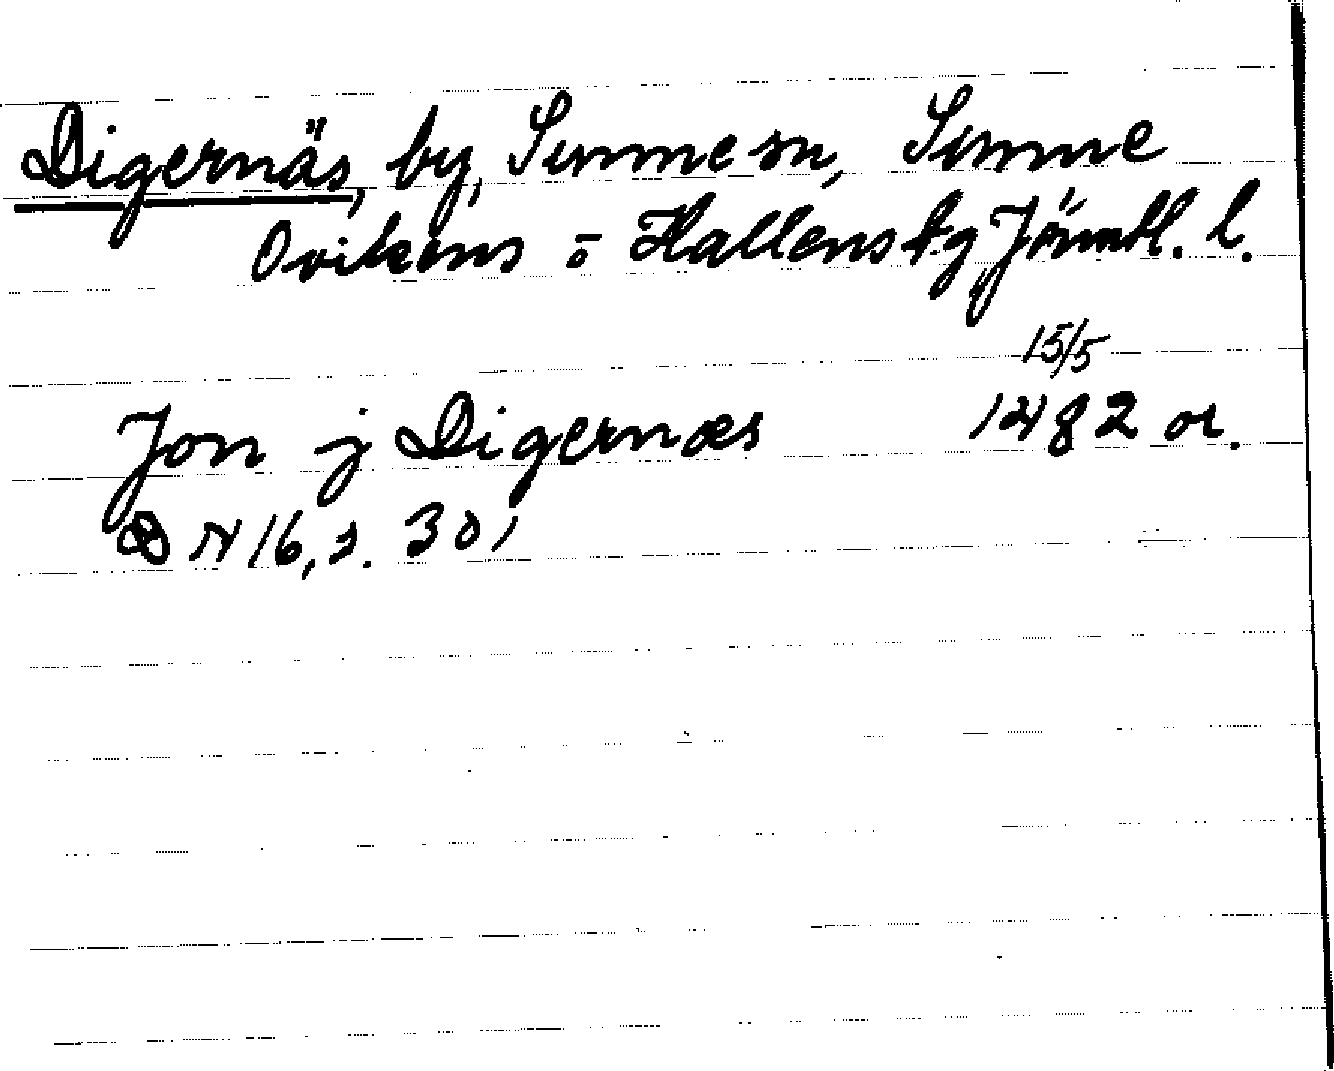 Digernäs, by, Sunne sn, Sunne
Ovikens o Hallens tg Jämtl. l.
15/5
Jon j Digernæs 1482 or.
DN 16, s. 301